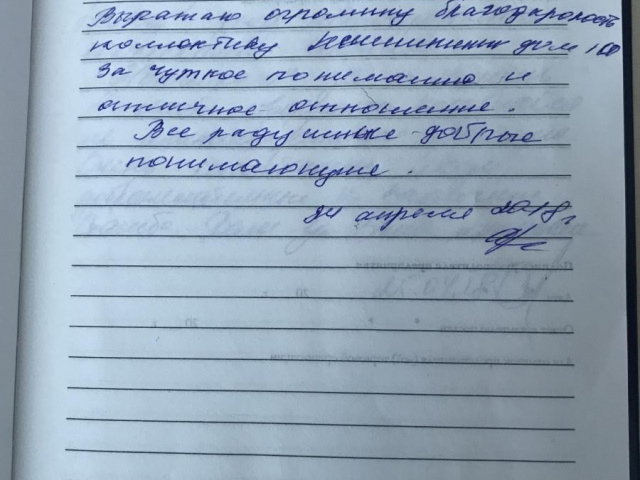 Выражаю огромную благодарность
коллективу дом
за чуткое понимание и
отличное отношение.
Все радушные добрые
понимающие.
24 апреля 2018 г